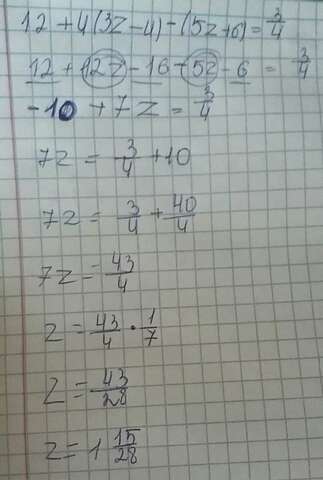 12 + 4(3z-4) - (5z+6) = 3/4
12 + 12z - 16 - 5z - 6 = 3/4
-10 + 7z = 3/4
7z = 3/4 + 10
7z = 3/4 + 40/4
7z = 43/4
z = 43/4 · 1/7
z = 43/28
z = 1 15/28